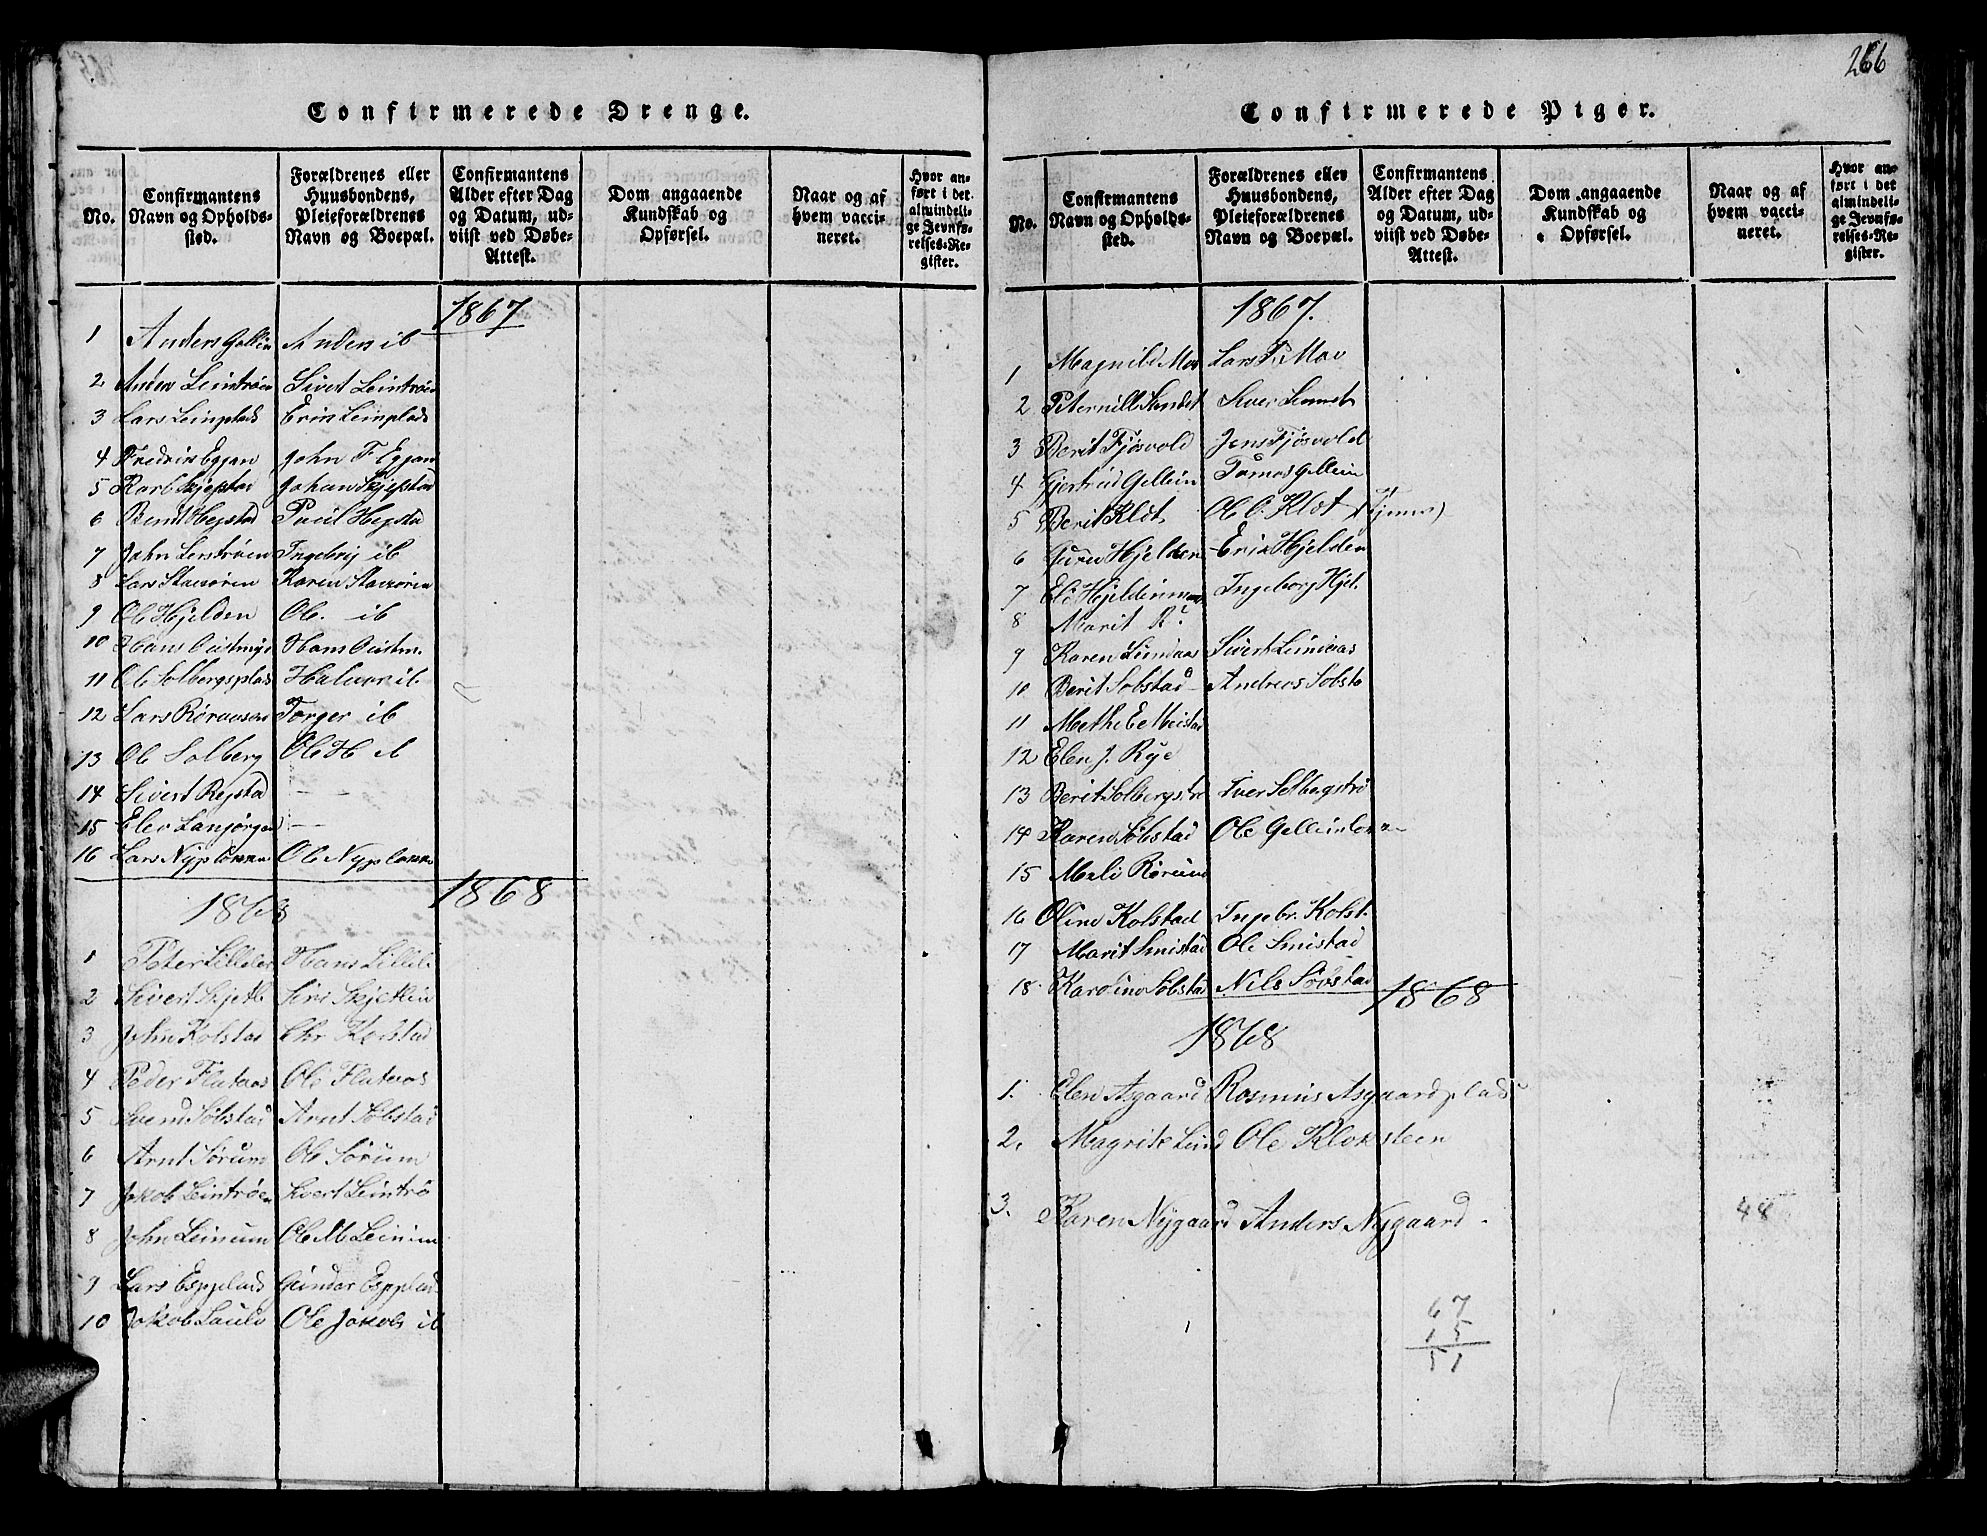 266
Confirmerede Drenge.
No.
Confirmantens Navn og Opholdssted.
Forældrenes eller Huusbondens, Pleieforældrenes Navn og Boepæl.
Confirmantens Alder efter Dag og Datum, udviist ved Døbe-Attest.
Dom angaaende Kundskab og Opførsel.
Naar og af hvem vaccineret.
Hvor anført i det almindelige Jevnførelses-Register.
1867
1 Anders Anders ib
2 Anders Leintrøen Sivert Leintrøen
3 Lars Leinplads Erik Leinplads
4 Fredrik Eggan John F Eggan
5 Karl Skjefstad Johan Skjefstad
6 Bernt Hegstad Paul Hegstad
7 John Lerstrøen Ingebrig ib
8 Lars Stavsøren Karen Stavsøren
9 Ole Hjelden Ole ib
10 Hans Hans
11 Ole Solbergsplads Halvor ib
12 Lars Torger ib
13 Ole Solberg Ole H ib
14 Sivert Regstad — —
15 Elev — —
16 Lars Nyplokken Ole Nyplokken
1868
1868
1 Peter Hans
2 Sivert Skjetle Siri Skjetlein
3 John Kolstad Chr Kolstad
4 Peder Flateraas Ole Flateraas
5 Svend Sølstad Arnt Sølstad
6 Arnt Sørum Ole Sørum
7 Jakob Leintrøen Sivert Leintrø
8 John Leinum Ole M Leinum
9 Lars Espplads Gunder Espplad
10 Jakob Ole Jakob ib
Confirmerede Piger.
No.
Confirmantens Navn og Opholdssted.
Forældrenes eller Huusbondens, Pleieforældrenes Navn og Boepæl.
Confirmantens Alder efter Dag og Datum, udviist ved Døbe-Attest.
Dom angaaende Kundskab og Opførsel.
Naar og af hvem vaccineret.
Hvor anført i det almindelige Jevnførelses-Register.
1867.
1 Magnild Mo Lars P. Mo
2 Peternill
3 Berit Fjøsvold Jens Fjøsvold
4 Gjertrud Gellein Tomas Gellein
5 Berit Klet Ole O. Klet
6 Guren Hjelden Erik Hjelden
7 Eli Ingeborg Hjel.
8 Marit
9 Karen Sivert
10 Berit Solstad Andreas Solsta
11 Methe
12 Elen J. Rye
13 Berit Solbergstrø Iver Solbegstrø
14 Karen Sølstad Ole
15 Mali
16 Oline Kolstad Ingebr. Kolst.
17 Marit Smistad Ole Smistad
18 Karoline Sølstad Nils Søvstad
1868
1868
1. Elen Asgaard Rasmus Asgaardplads
2. Magrite Lund Ole Kloksteen
3. Karen Nygaard Anders Nygaard
48
67
15
51